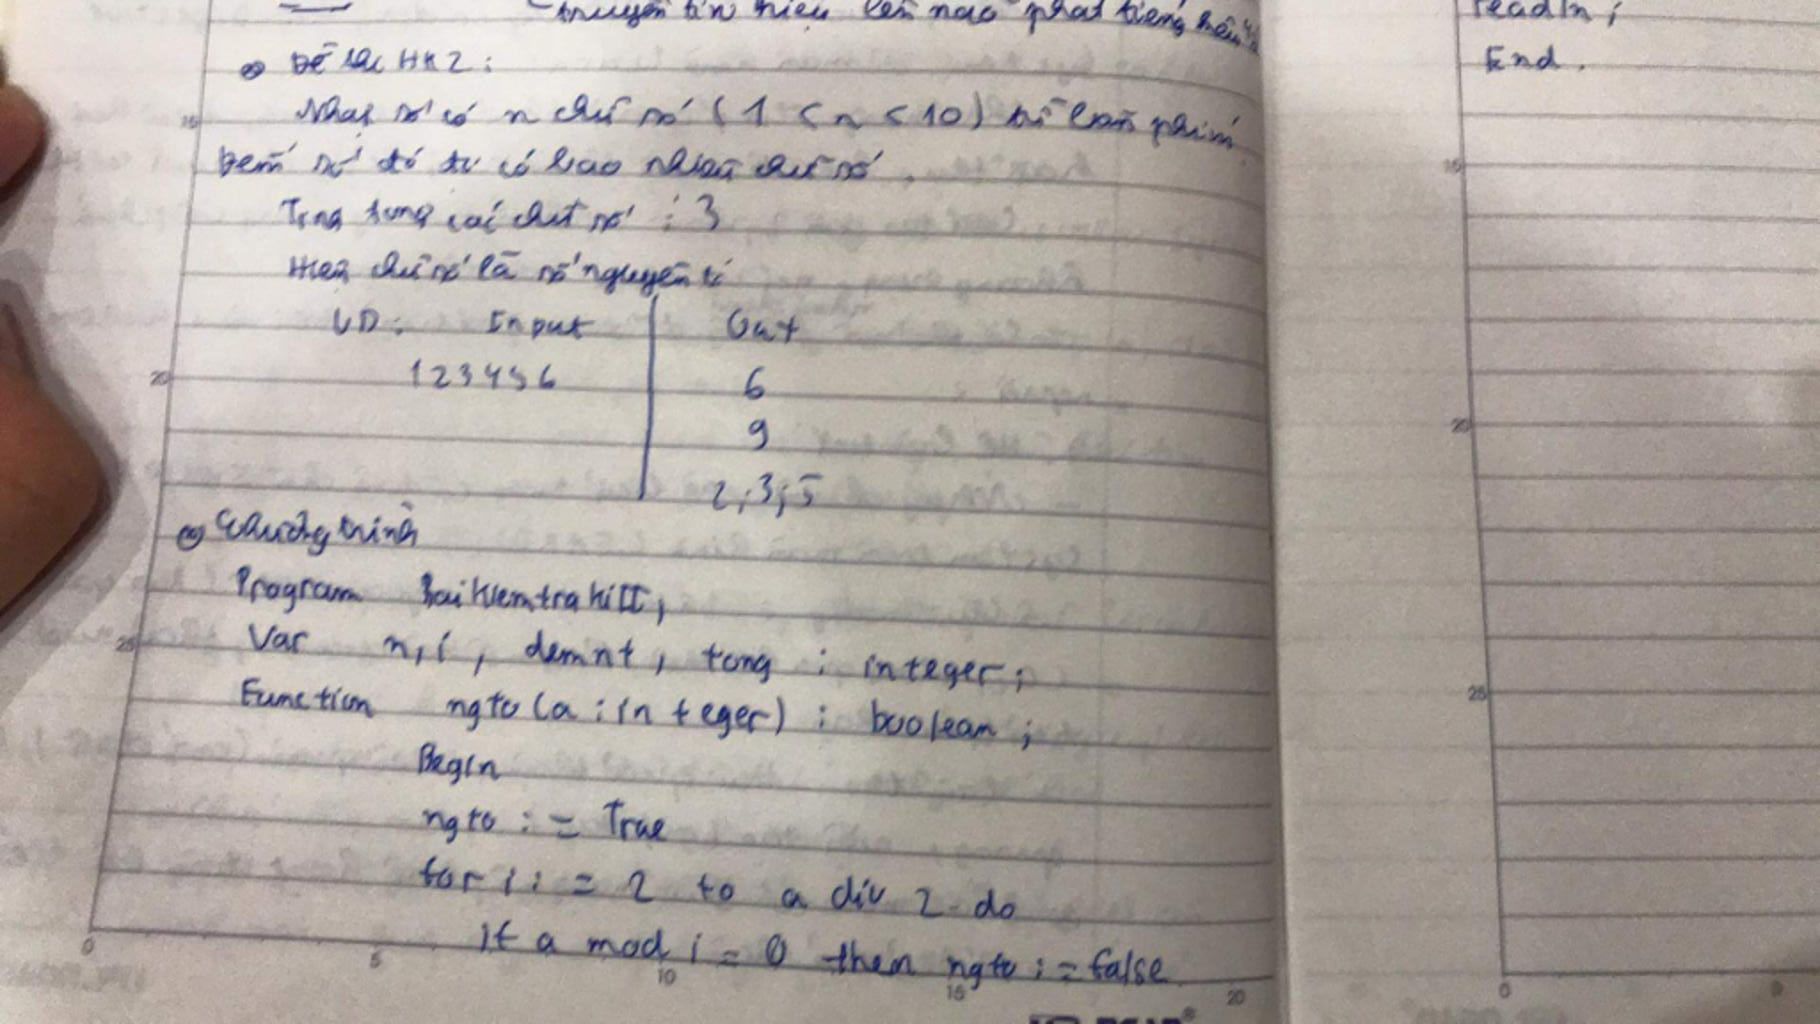 truyền tín hiệu lên não phát tiếng kêu
Đề lại HK2:
Nhap số có n chữ số (1 < n < 10) từ bàn phím
Đếm số đó có bao nhiêu chữ số.
Tong các chữ số : 3
Hiện chữ số là số nguyên tố
VD: Input Out
123456 6
9
2;3;5
Chương trình
Program Baikiemtrakì II;
Var n,i, demnt, tong : integer;
Function ngto(a:integer) : boolean;
Begin
ngto := True
for i:= 2 to a div 2 do
If a mod i = 0 then ngto := false
readln;
End.
15
20
25
0 5 10 15 20
15
20
25
0